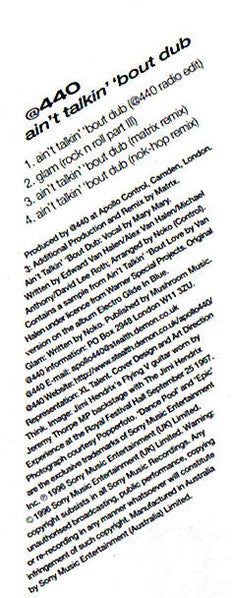 @440
ain't talkin' 'bout dub
1. ain't talkin' 'bout dub (@440 radio edit)
2. glam (rock n roll part III)
3. ain't talkin' 'bout dub (matrix remix)
4. ain't talkin' 'bout dub (nok-hop remix)
Produced by @440 at Apollo Control, Camden, London.
3: Additional Production and Remix by Matrix.
Ain't Talkin' 'Bout Dub: Vocal by Mary Mary.
Written by Edward Van Halen/Alex Van Halen/Michael
Anthony/David Lee Roth; Arranged by Noko (Control).
Contains a sample from Ain't Talkin' 'Bout Love by Van
Halen under licence from Warner Special Projects. Original
version on the album Electro Glide In Blue.
Glam: Written by Noko. Published by Mushroom Music.
@440 Information: PO Box 2048 London W11 3ZU.
@440 E-mail: apollo440@stealth.demon.co.uk
@440 Website: http://www.stealth.demon.co.uk/apollo440/
Representation: XL Talent. Cover Design and Art Direction
Think. Image: Jimi Hendrix's Flying V guitar worn by
Jeremy Thorpe MP backstage with The Jimi Hendrix
Experience at the Royal Festival Hall September 25 1967.
Photograph courtesy Popperfoto. 'Dance Pool' and 'Epic'
are the exclusive trademarks of Sony Music Entertainment
Inc. ℗ 1996 Sony Music Entertainment (UK) Limited.
© 1996 Sony Music Entertainment (UK) Limited. Warning:
copyright subsists in all Sony Music Recordings. Any
unauthorised broadcasting, public performance, copying
or re-recording in any manner whatsoever will constitute
infringement of such copyright. Manufactured in Australia
by Sony Music Entertainment (Australia) Limited.